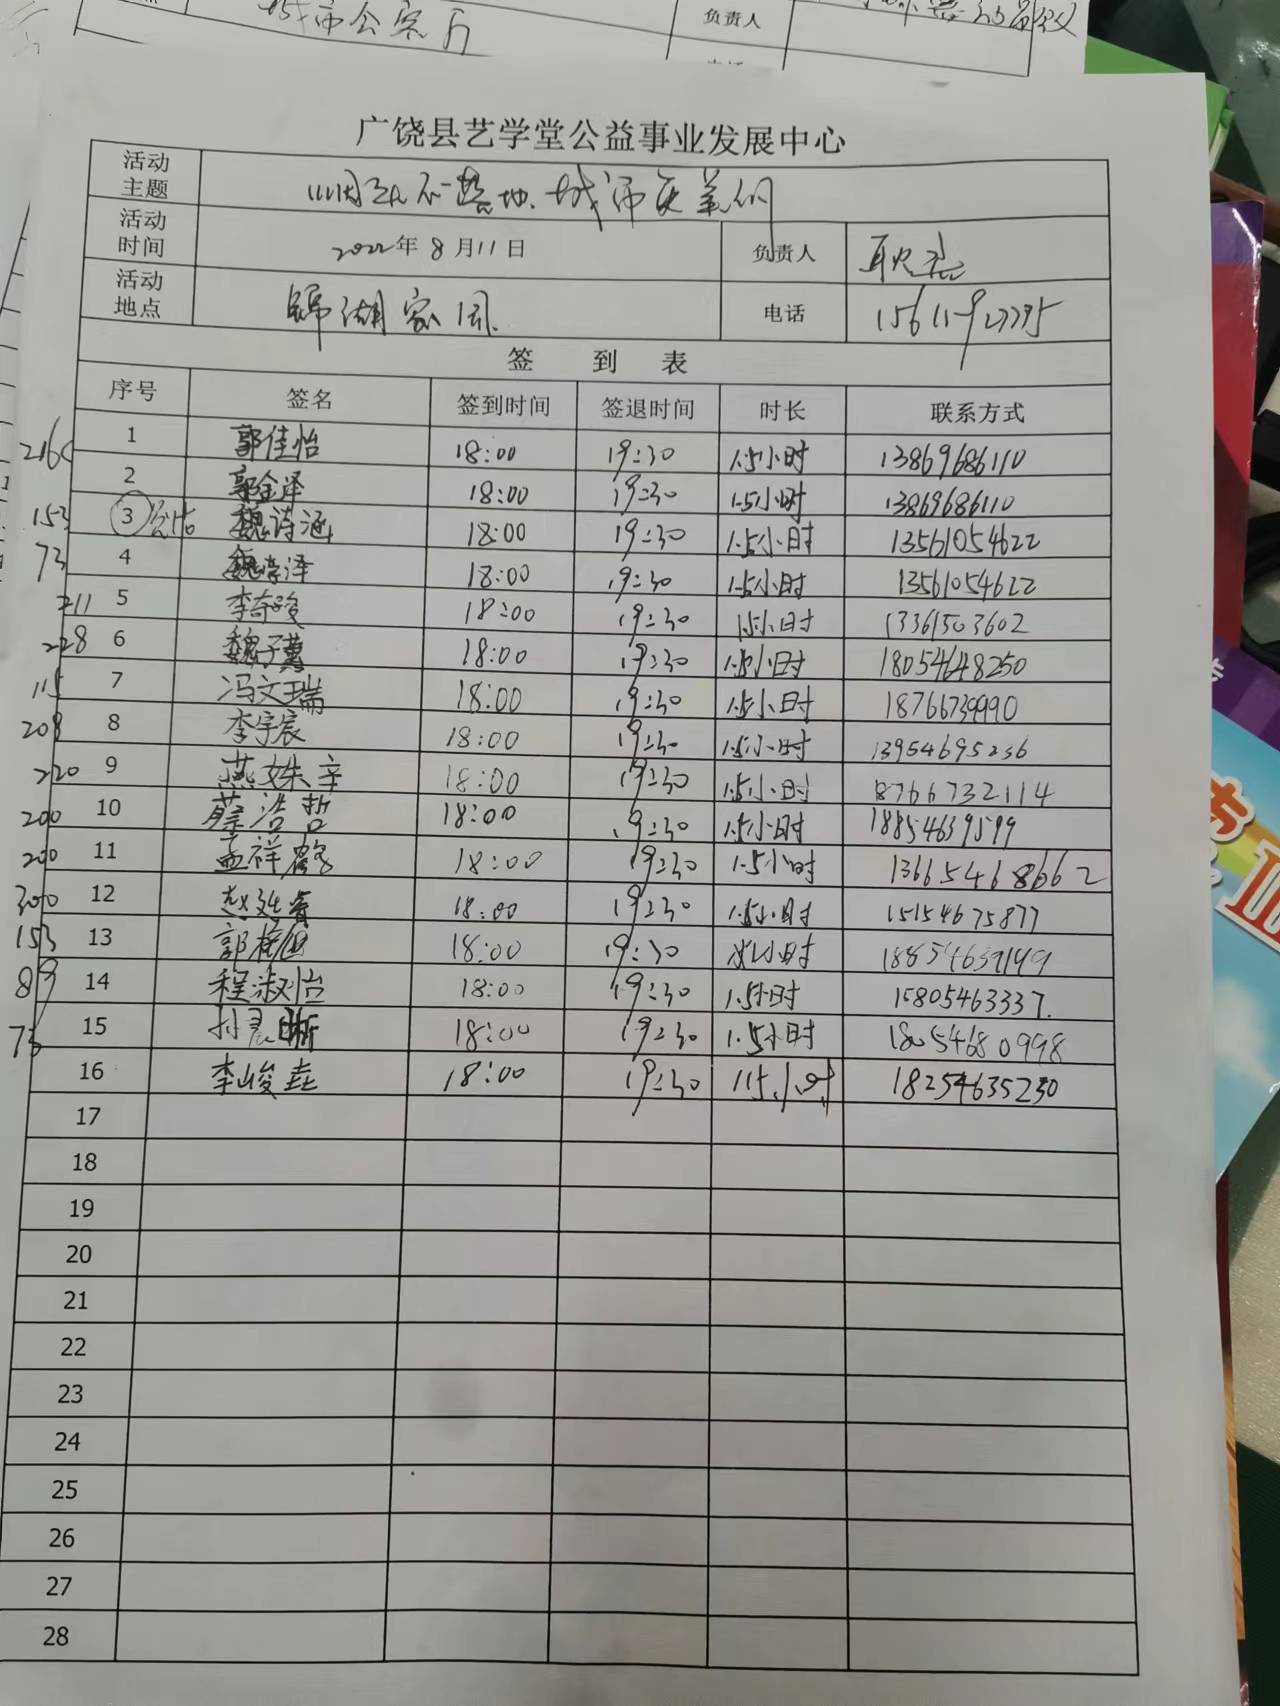 城市公客厅
负责人
广饶县艺学堂公益事业发展中心
活动主题 烟头不落地.城市更美们
活动时间 2022年8月11日 负责人
活动地点 锦湖家园. 电话
签到表
序号 签名 签到时间 签退时间 时长 联系方式
216 1 郭佳怡 18:00 19:30 1.5小时 13869686110
2 郭金泽 18:00 19:30 1.5小时 13869686110
153 3 魏诗涵 18:00 19:30 1.5小时 13561054622
73 4 18:00 19:30 1.5小时 13561054622
211 5 李奇骏 18:00 19:30 1.5小时 13361503602
228 6 魏子冀 18:00 19:30 1.5小时 18054648250
115 7 冯文瑞 18:00 19:30 1.5小时
208 8 李宇宸 18:00 19:30 1.5小时 13954695236
220 9 燕姝辛 18:00 19:30 1.5小时 8766732114
200 10 蔡浩哲 18:00 19:30 1.5小时 18854639599
200 11 孟祥鹤 18:00 19:30 1.5小时 13665468662
300 12 赵延睿 18:00 19:30 1.5小时 15154675877
153 13 18:00 19:30 小时 18854637149
89 14 程淑怡 18:00 19:30 1.5小时 15805463337.
73 15 孙晨晰 18:00 19:30 1.5小时 18054680998
16 李峻垚 18:00 19:30 1.5小时 18254635230
17
18
19
20
21
22
23
24
25
26
27
28